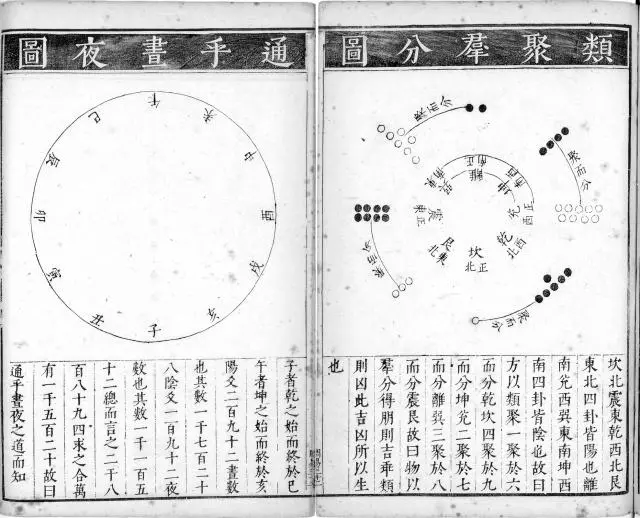 類聚羣分圖
聚而分
聚而分
聚而分
聚而分
離
南正
巽
南東
坤
南西
震
東正
兌
西正
艮
北東
乾
北西
坎
北正
坎北震東乾西北艮
東北四卦皆陽也離
南兌西巽東南坤西
南四卦皆陰也故曰
方以類聚一聚於六
而分乾坎四聚於九
而分坤兌二聚於七
而分離巽三聚於八
而分震艮故曰物以
羣分得朋則吉乖類
則凶此吉凶所以生
也
通乎晝夜圖
午
未
申
酉
戌
亥
子
丑
寅
卯
辰
巳
子者乾之始而終於巳
午者坤之始而終於亥
陽爻二百九十二晝數
也其數一千七百二十
八陰爻一百九十二夜
數也其數一千一百五
十二總而言之二千八
百八十九四求之合萬
有一千五百二十故曰
通乎晝夜之道而知